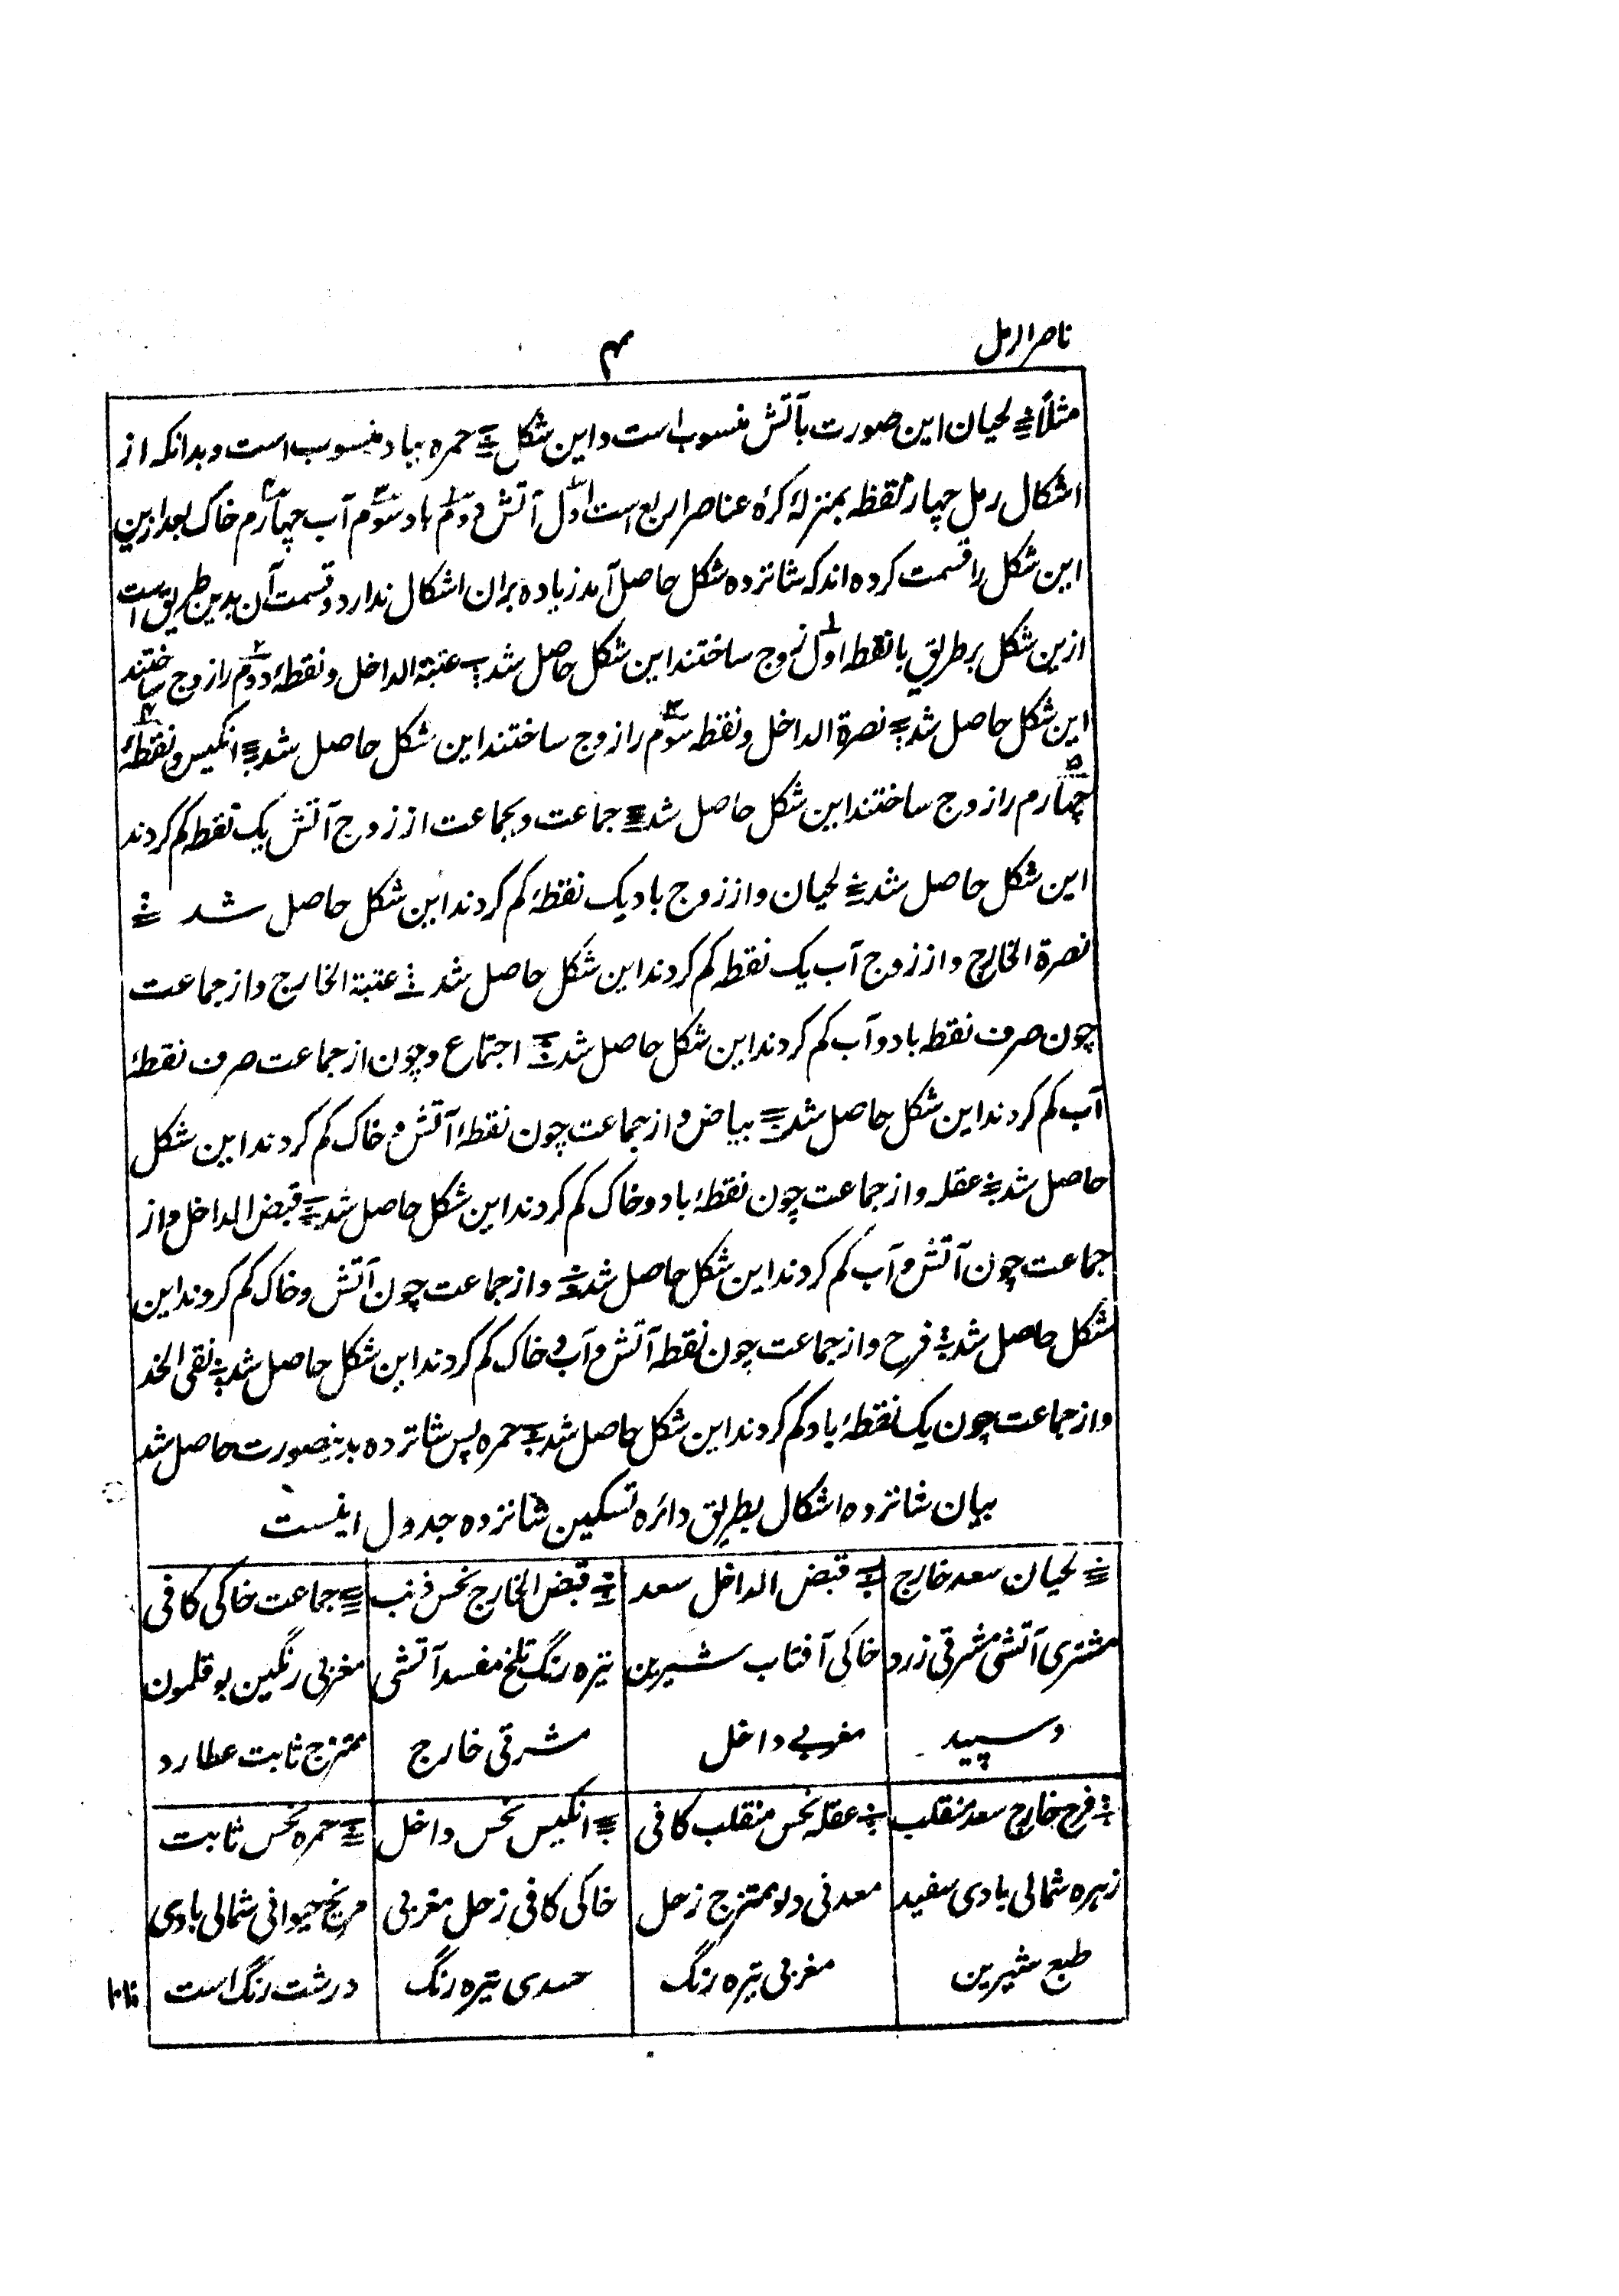 ناصر الرمل
۴
مثلاً لحیان این صورت بآتش منسوب است و این شکل حمره بباد منسوب است و بدانکه از
اشکال رمل چهار نقطه بمنزلهٔ کرهٔ عناصر اربع است اوّل آتش دوّم باد سوّم آب چهارم خاک بعد ازین
این شکل را قسمت کرده‌اند که شانزده شکل حاصل آمد زیاده بران اشکال ندارد و قسمت آن بدین طریق است
ازین شکل بر طریق با نقطه اوّل زوج ساختند این شکل حاصل شد عتبة الداخل و نقطهٔ دوّم را زوج ساختند
این شکل حاصل شد نصرة الداخل و نقطه سوّم را زوج ساختند این شکل حاصل شد انکیس و نقطهٔ
چهارم را زوج ساختند این شکل حاصل شد جماعت و بجماعت از زوج آتش یک نقطه کم کردند
این شکل حاصل شد لحیان و از زوج باد یک نقطهٔ کم کردند این شکل حاصل شد
نصرة الخارج و از زوج آب یک نقطه کم کردند این شکل حاصل شد عتبة الخارج و از جماعت
چون صرف نقطه باد و آب کم کردند این شکل حاصل شد اجتماع و چون از جماعت صرف نقطهٔ
آب کم کردند این شکل حاصل شد بیاض و از جماعت چون نقطهٔ آتش و خاک کم کردند این شکل
حاصل شد عقله و از جماعت چون نقطهٔ باد و خاک کم کردند این شکل حاصل شد قبض الداخل و از
جماعت چون آتش و آب کم کردند این شکل حاصل شد و از جماعت چون آتش و خاک کم کردند این
شکل حاصل شد فرح و از جماعت چون نقطه آتش و آب و خاک کم کردند این شکل حاصل شد نقی الخد
و از جماعت چون یک نقطهٔ باد کم کردند این شکل حاصل شد حمره پس شانزده بدینصورت حاصل شد
بیان شانزده اشکال بطریق دائره تسکین شانزده جدول اینست
لحیان سعد خارج
مشتری آتشی مشرقی زرد
و سپید
قبض الداخل سعد
خاکی آفتاب شیرین
مغربی داخل
قبض الخارج نحس ذنب
تیره رنگ تلخ مفسد آتشی
مشرقی خارج
جماعت خاکی کافی
مغربی رنگین بوقلمون
ممتزج ثابت عطارد
فرح خارج سعد منقلب
زهره شمالی بادی سفید
طبع شیرین
عقله نحس منقلب کافی
معدنی دلو ممتزج زحل
مغربی تیره رنگ
انکیس نحس داخل
خاکی کافی زحل مغربی
حسدی تیره رنگ
حمره نحس ثابت
مریخ حیوانی شمالی بادی
درشت رنگ است